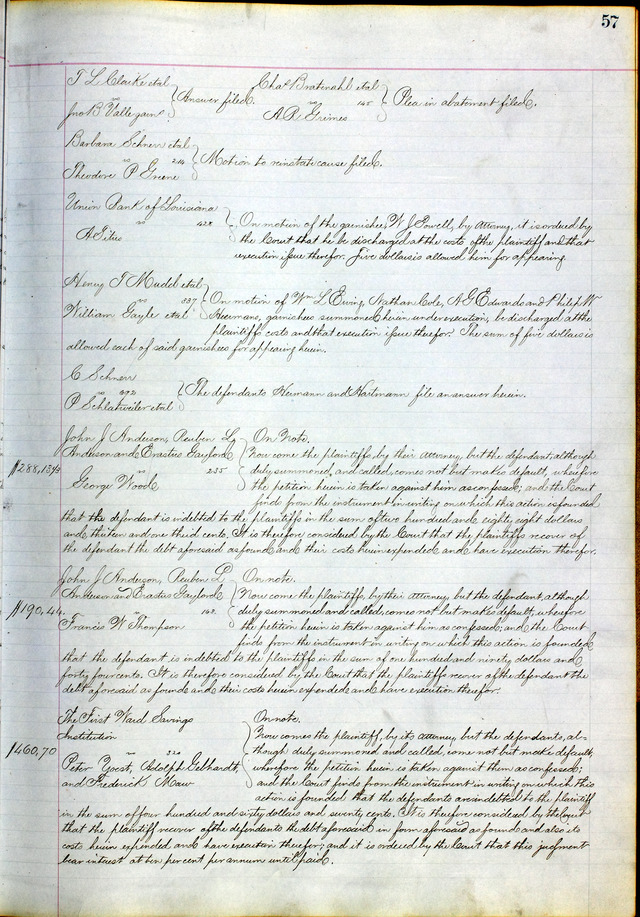 57
T L Clarke etal
vs } Answer filed.
Jno B Vallegain
Chas Bratenahl etal
vs 145 } Plea in abatement filed.
A R Grimes
Barbara Schnerr etal
vs 214 } Motion to reinstate cause filed.
Theodore P Greene
Union Bank of Louisiana
vs 428
A Titus
On motion of the garnishee, W J Powell, by Attorney, it is ordered by
the Court that he be discharged at the costs of the plaintiff and that
execution issue therefor. Five dollars is allowed him for appearing
Henry T Mudd etal
vs 337
William Gayle etal
On motion of Wm L Ewing, Nathan Cole, A G Edwards and Philip W
Heermans, garnishees summoned herein under execution, be discharged at the
plaintiffs costs and that execution issue therefor. The sum of five dollars is
allowed each of said garnishees for appearing herein.
C Schnerr
vs 392
P Schlatweiler etal
The defendants Heimann and Hartmann file an answer herein.
John J Anderson, Reuben L
Anderson and Erastus Gaylord
vs 255
George Wood
On Note.
Now come the plaintiffs, by their attorney, but the defendant, although
$288,13⅓
duly summoned, and called, comes not but makes default, wherefore
the petition herein is taken against him as confessed; and the Court
finds from the instrument in writing on which this action is founded
that the defendant is indebted to the plaintiffs in the sum of two hundred and eighty eight dollars
and thirteen and one third cents. It is therefore considered by the Court that the plaintiffs recover of
the defendant the debt aforesaid as found and their costs herein expended and have execution therefor.
John J Anderson, Reuben L
Anderson and Erastus Gaylord
vs 148
Francis W Thompson
On note.
Now come the plaintiffs, by their attorney, but the defendant, although
$190,44
duly summoned and called, comes not but makes default; wherefore
the petition herein is taken against him as confessed; and the Court
finds from the instrument in writing on which this action is founded
that the defendant is indebted to the plaintiffs in the sum of one hundred and ninety dollars and
forty four cents. It is therefore considered by the Court that the plaintiffs recover of the defendant the
debt aforesaid as found and their costs herein expended and have execution therefor.
The First Ward Savings
Institution
vs 320
Peter Yoest, Adolph Gebhardt,
and Frederick Maw
On note.
Now comes the plaintiff, by its attorney, but the defendants, al-
$460,70
though duly summoned and called, come not but make default;
wherefore the petition herein is taken against them as confessed;
and the Court finds from the instrument in writing on which this
action is founded that the defendants are indebted to the plaintiff
in the sum of four hundred and sixty dollars and seventy cents. It is therefore considered by the Court
that the plaintiff recover of the defendants the debt aforesaid in form aforesaid as found and also its
costs herein expended and have execution therefor; and it is ordered by the Court that this judgment
bear interest at ten per cent per annum until paid.